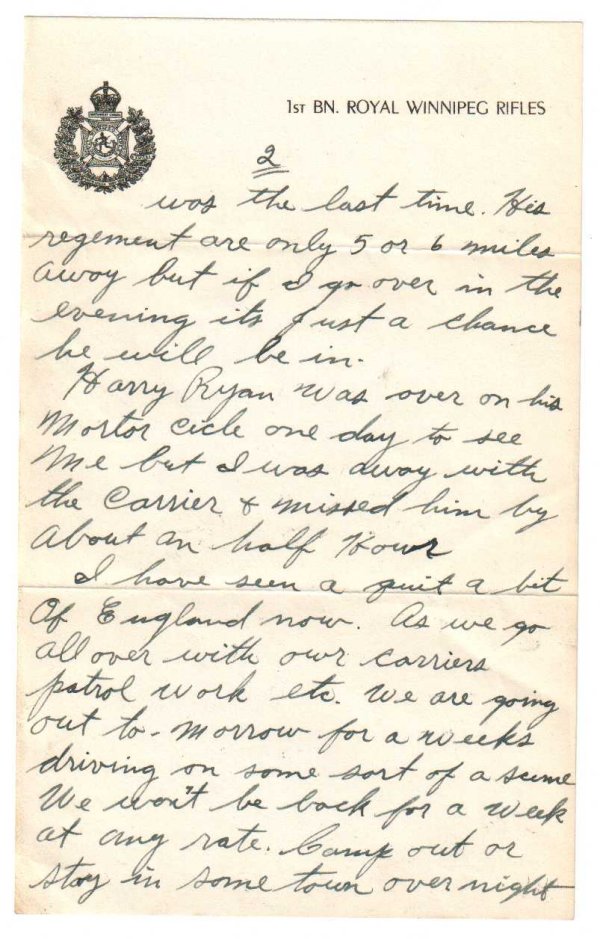 1ST BN. ROYAL WINNIPEG RIFLES
2
was the last time. His
regement are only 5 or 6 miles
away but if I go over in the
evening its just a chance
he will be in.
Harry Ryan was over on his
Mortor cicle one day to see
Me but I was away with
the Carrier & missed him by
About an half Hour
I have seen a quit a bit
Of England now. As we go
all over with our carriers
patrol work etc. We are going
out to-morrow for a weeks
driving on some sort of a sceme
We won't be back for a week
at any rate. Camp out or
stay in some town over night